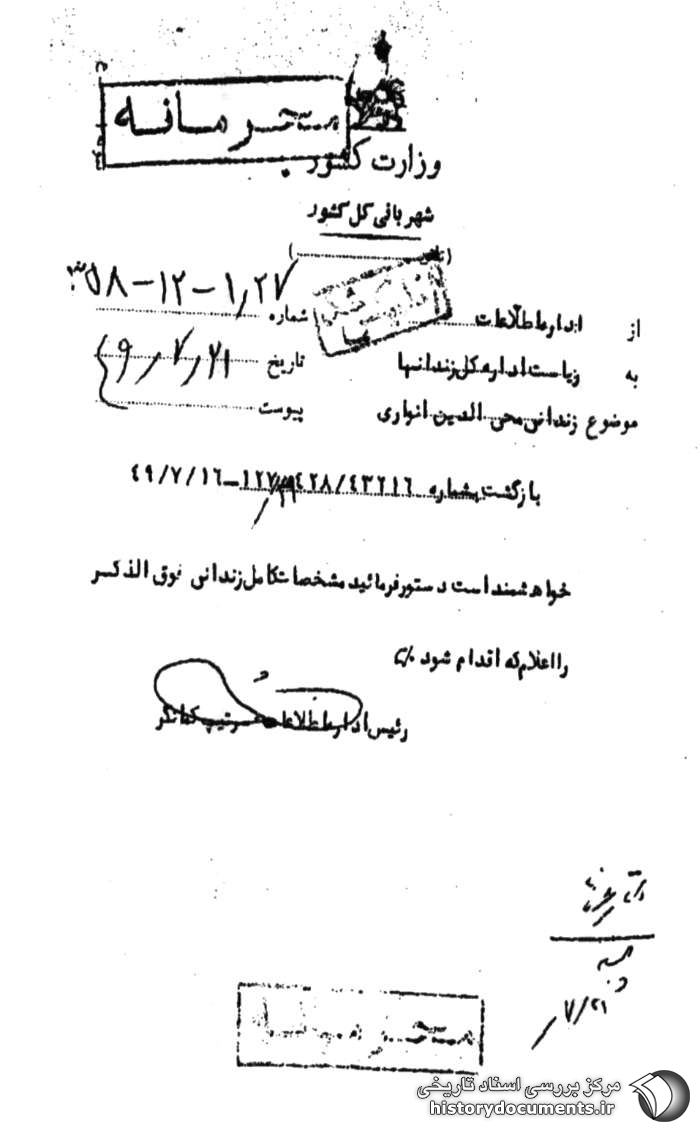 محرمانه
وزارت کشور
شهربانی کل کشور
از اداره اطلاعات
شماره
به ریاست اداره کل زندانها
تاریخ ۴۹/۷/۲۱
موضوع زندانی محی الدین انواری
پیوست
بازگشت بشماره ٤٩/٧/١٦
خواهشمند است دستور فرمائید مشخصات کامل زندانی فوق الذکر
را اعلام که اقدام شود
رئیس اداره اطلاعات سرتیپ کمانگر
۷/۲۱
محرمانه
مرکز بررسی اسناد تاریخی
historydocuments.ir